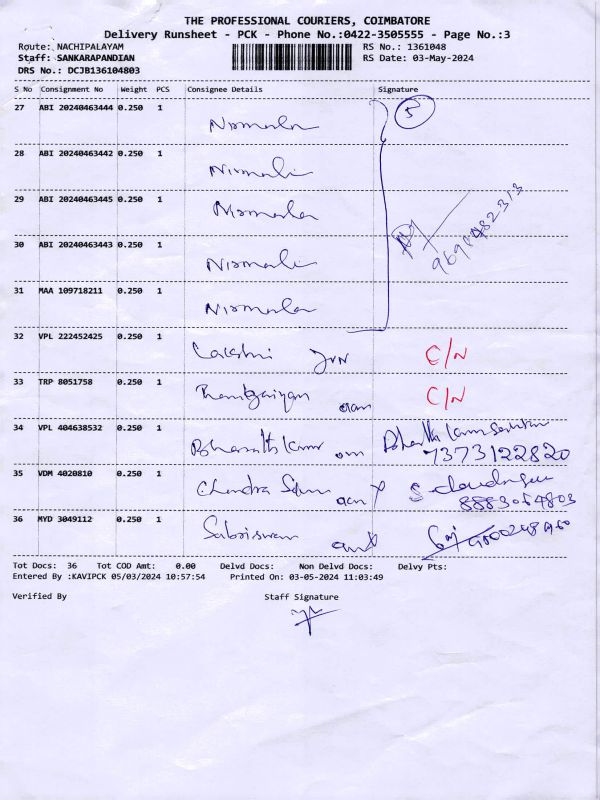 THE PROFESSIONAL COURIERS, COIMBATORE
Delivery Runsheet - PCK - Phone No.:0422-3505555 - Page No.:3
Route: NACHIPALAYAM RS No.: 1361048
Staff: SANKARAPANDIAN RS Date: 03-May-2024
DRS No.: DCJB136104803
S No Consignment No Weight PCS Consignee Details Signature
27 ABI 20240463444 0.250 1 Nirmala 5
28 ABI 20240463442 0.250 1 Nirmala
29 ABI 20240463445 0.250 1 Nirmala
30 ABI 20240463443 0.250 1 Nirmala
31 MAA 109718211 0.250 1 Nirmala
32 VPL 222452425 0.250 1 Lakshmi C/N
33 TRP 8051758 0.250 1 C/N
34 VPL 404638532 0.250 1 Bharathkumar
7373122820
35 VDM 4020810 0.250 1 Chandra
8883064803
36 MYD 3049112 0.250 1
Tot Docs: 36 Tot COD Amt: 0.00 Delvd Docs: Non Delvd Docs: Delvy Pts:
Entered By :KAVIPCK 05/03/2024 10:57:54 Printed On: 03-05-2024 11:03:49
Verified By Staff Signature